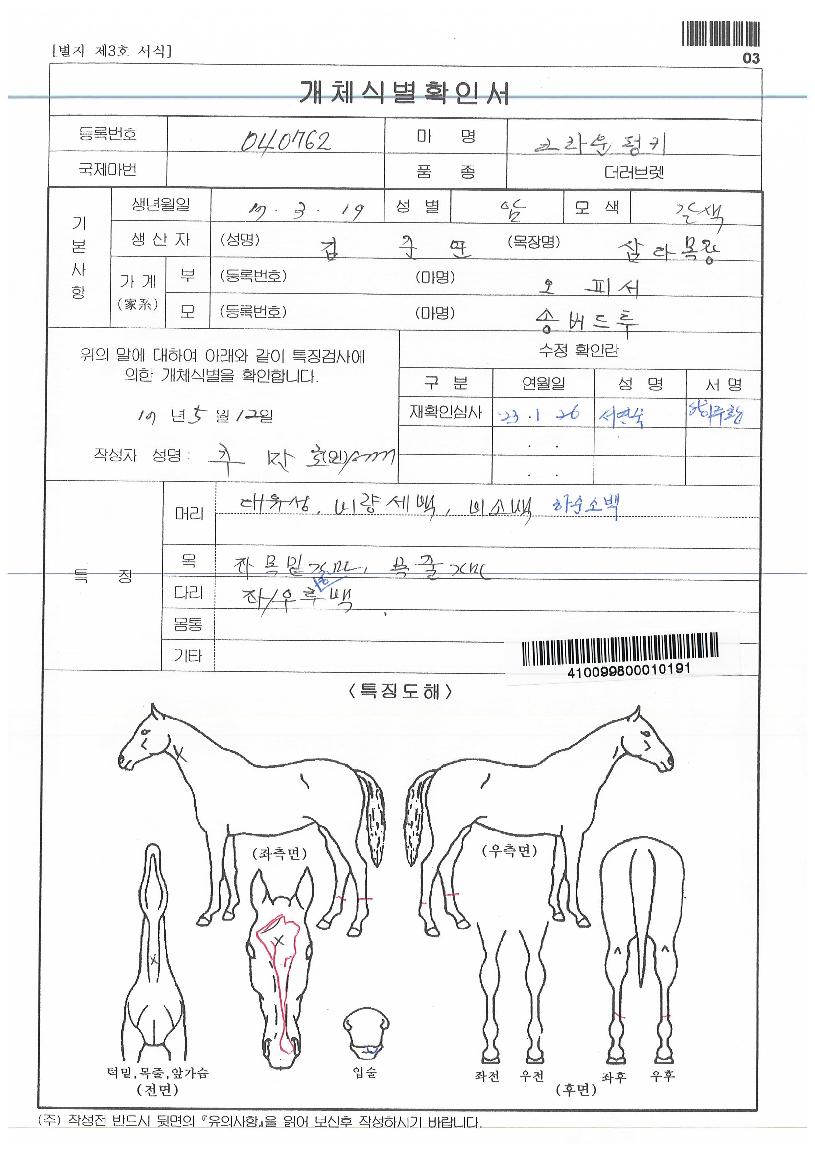 [별지 제3호 서식]
03
개체식별확인서
등록번호 040762 마 명 크라운펑키
국제마번 품 종 더러브렛
기본사항
생년월일 17 . 3 . 19 성 별 암 모 색 갈색
생 산 자 (성명) 김 준 연 (목장명) 삼다목장
가 계 (家系)
부 (등록번호) (마명) 오 피서
모 (등록번호) (마명) 송버드투
위의 말에 대하여 아래와 같이 특징검사에
의한 개체식별을 확인합니다.
17 년 5 월 12일
작성자 성명 : (인)
수정 확인란
구 분 연월일 성 명 서 명
재확인심사 '23 . 1 26 서연숙
. .
. .
특 징
머리 대유성, 비량세백, 비소백 하순소백
목 좌목밑가마, 목줄가마
다리 좌/우후백
몸통
기타
410099800010191
<특징도해>
(좌측면) (우측면)
턱밑,목줄,앞가슴
(전면)
입술
좌전 우전 좌후 우후
(후면)
(주) 작성전 반드시 뒷면의 『유의사항』을 읽어 보신후 작성하시기 바랍니다.